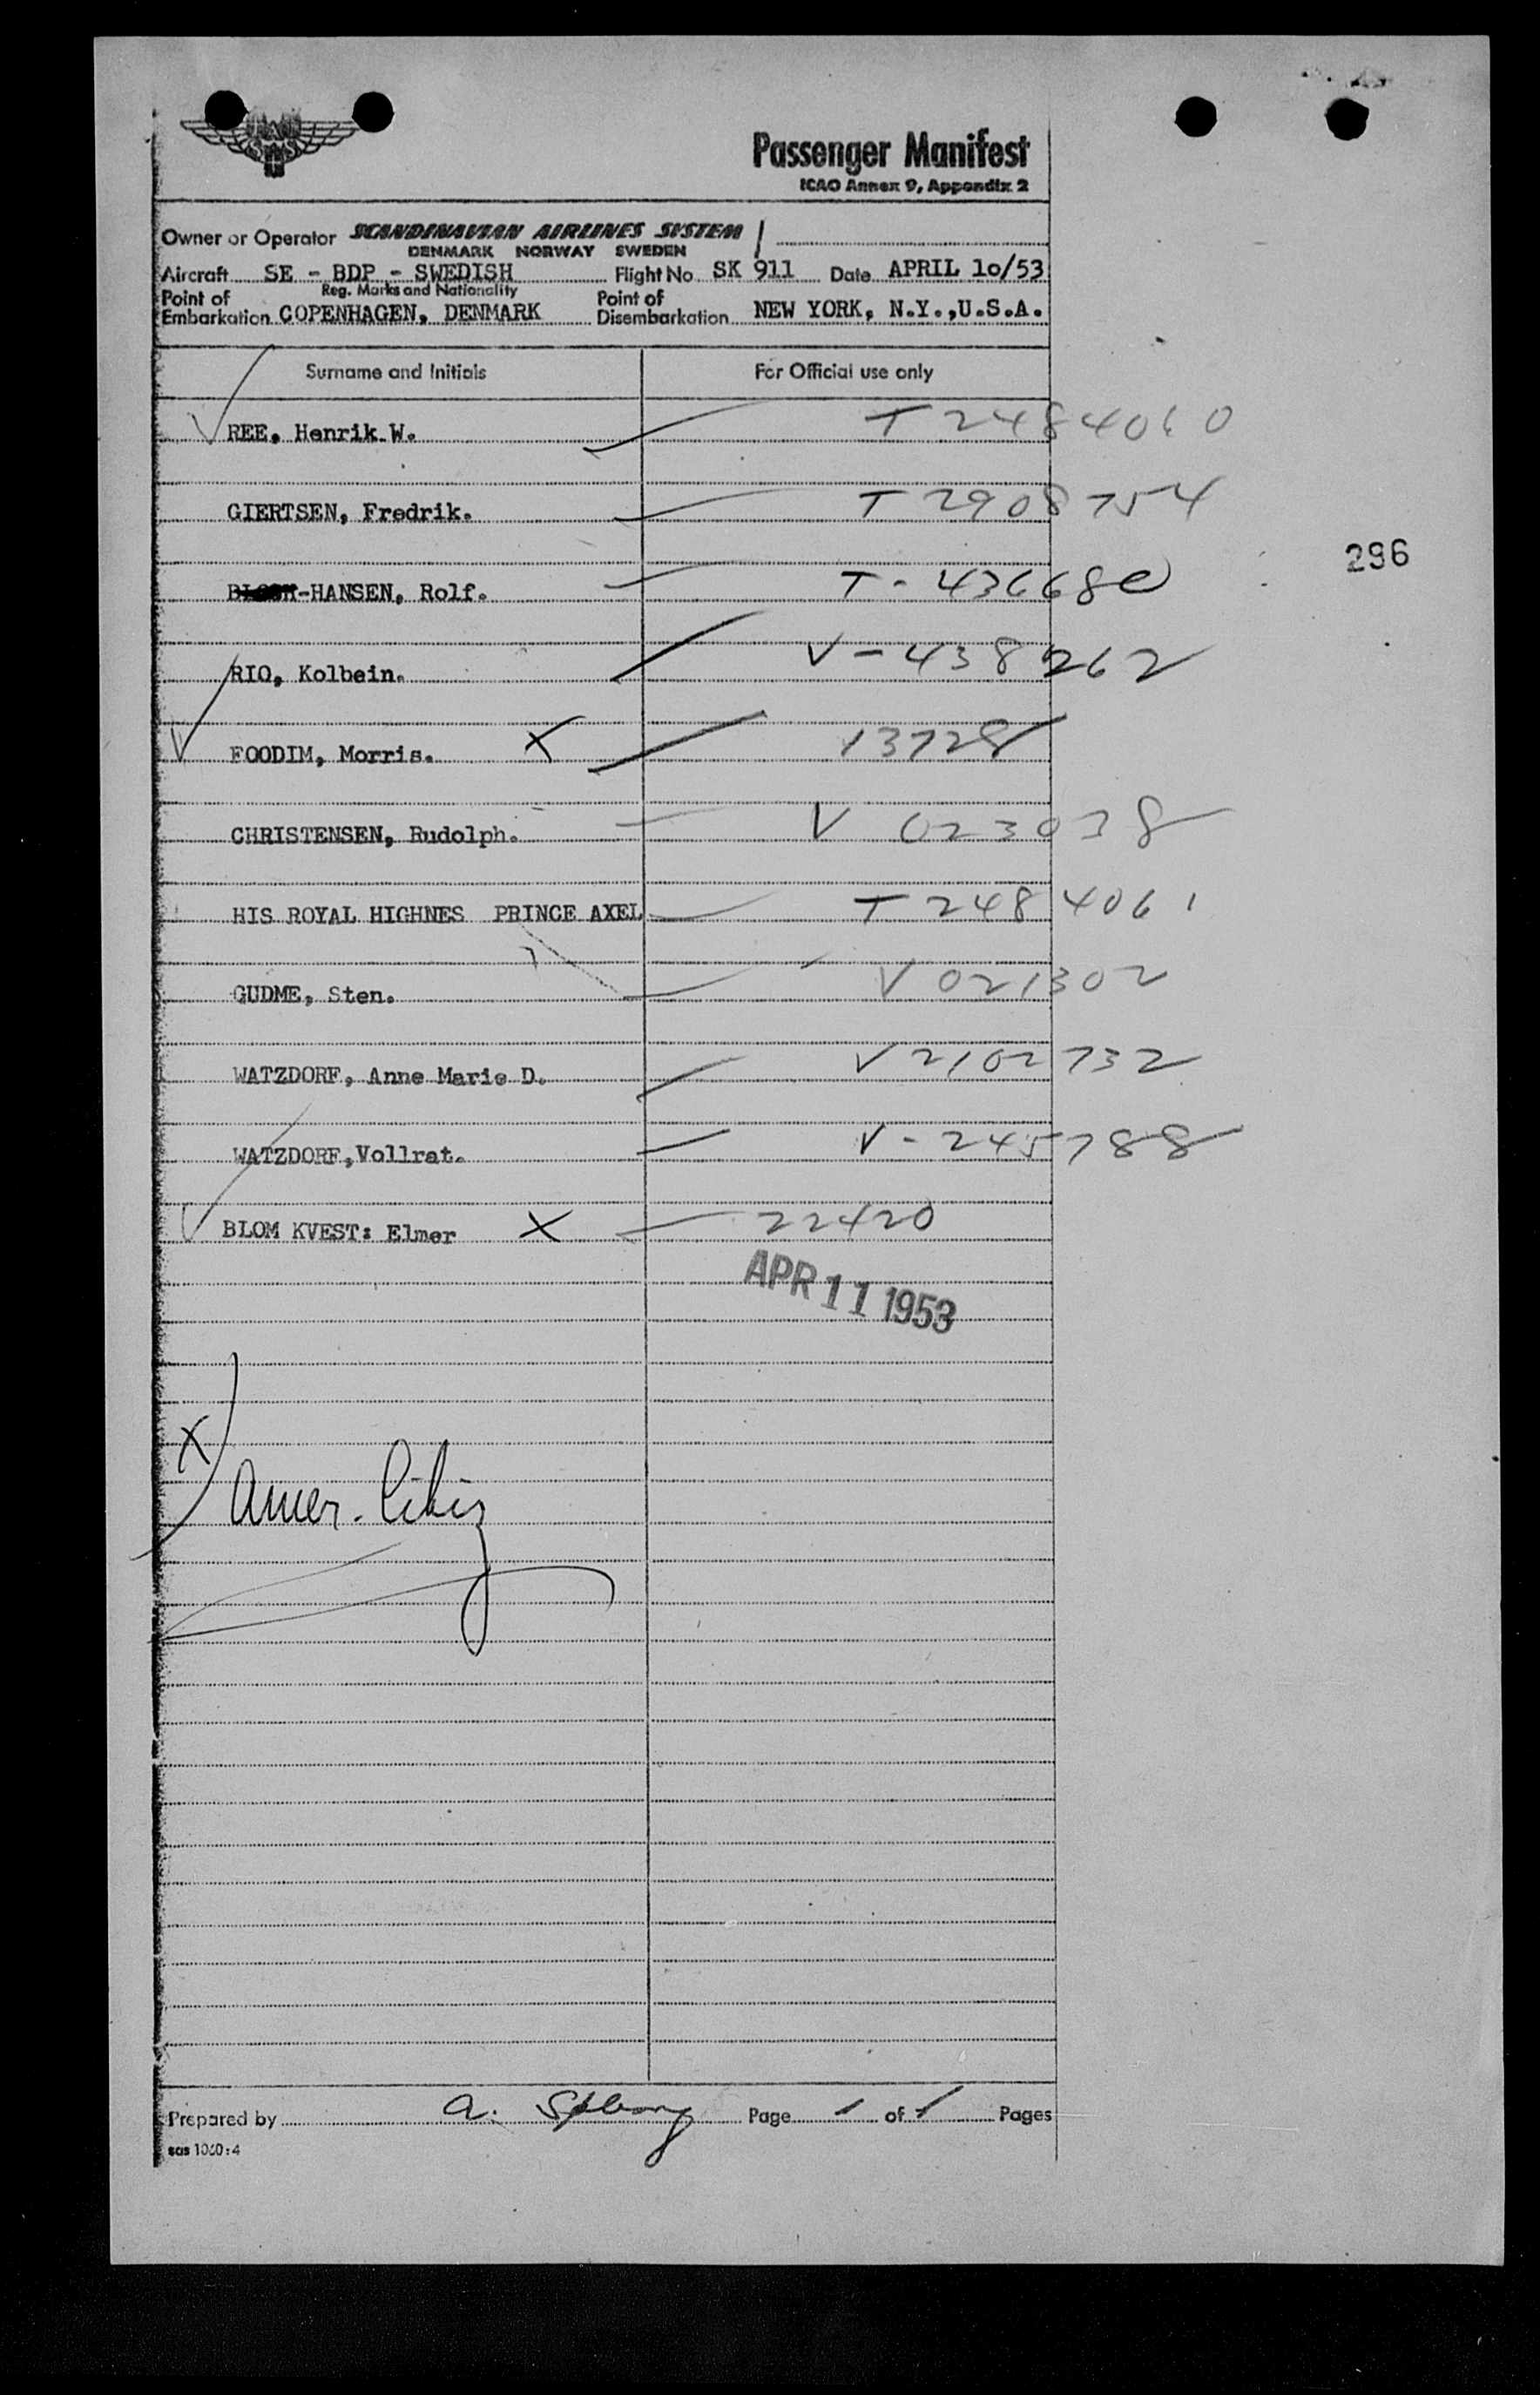 Passenger Manifest
ICAO Annex 9, Appendix 2
Owner or Operator SCANDINAVIAN AIRLINES SYSTEM
DENMARK NORWAY SWEDEN
Aircraft SE - BDP - SWEDISH Flight No. SK 911 Date APRIL 10/53
Reg. Marks and Nationality
Point of Embarkation COPENHAGEN, DENMARK Point of Disembarkation NEW YORK, N.Y.,U.S.A.
Surname and Initials For Official use only
REE, Henrik W. T 2484060
GIERTSEN, Fredrik. T 2908754
296
-HANSEN, Rolf. T - 436680
RIO, Kolbein. V - 438262
FOODIM, Morris. X 13728
CHRISTENSEN, Rudolph. V 023038
HIS ROYAL HIGHNES PRINCE AXEL T 2484061
GUDME, Sten. V 021302
WATZDORF, Anne Marie D. V 2102732
WATZDORF,Vollrat. V - 245788
BLOM KVEST: Elmer X 22420
APR 11 1953
X
Amer. Citiz
Prepared by A. Page 1 of 1 Pages
sas 1060:4